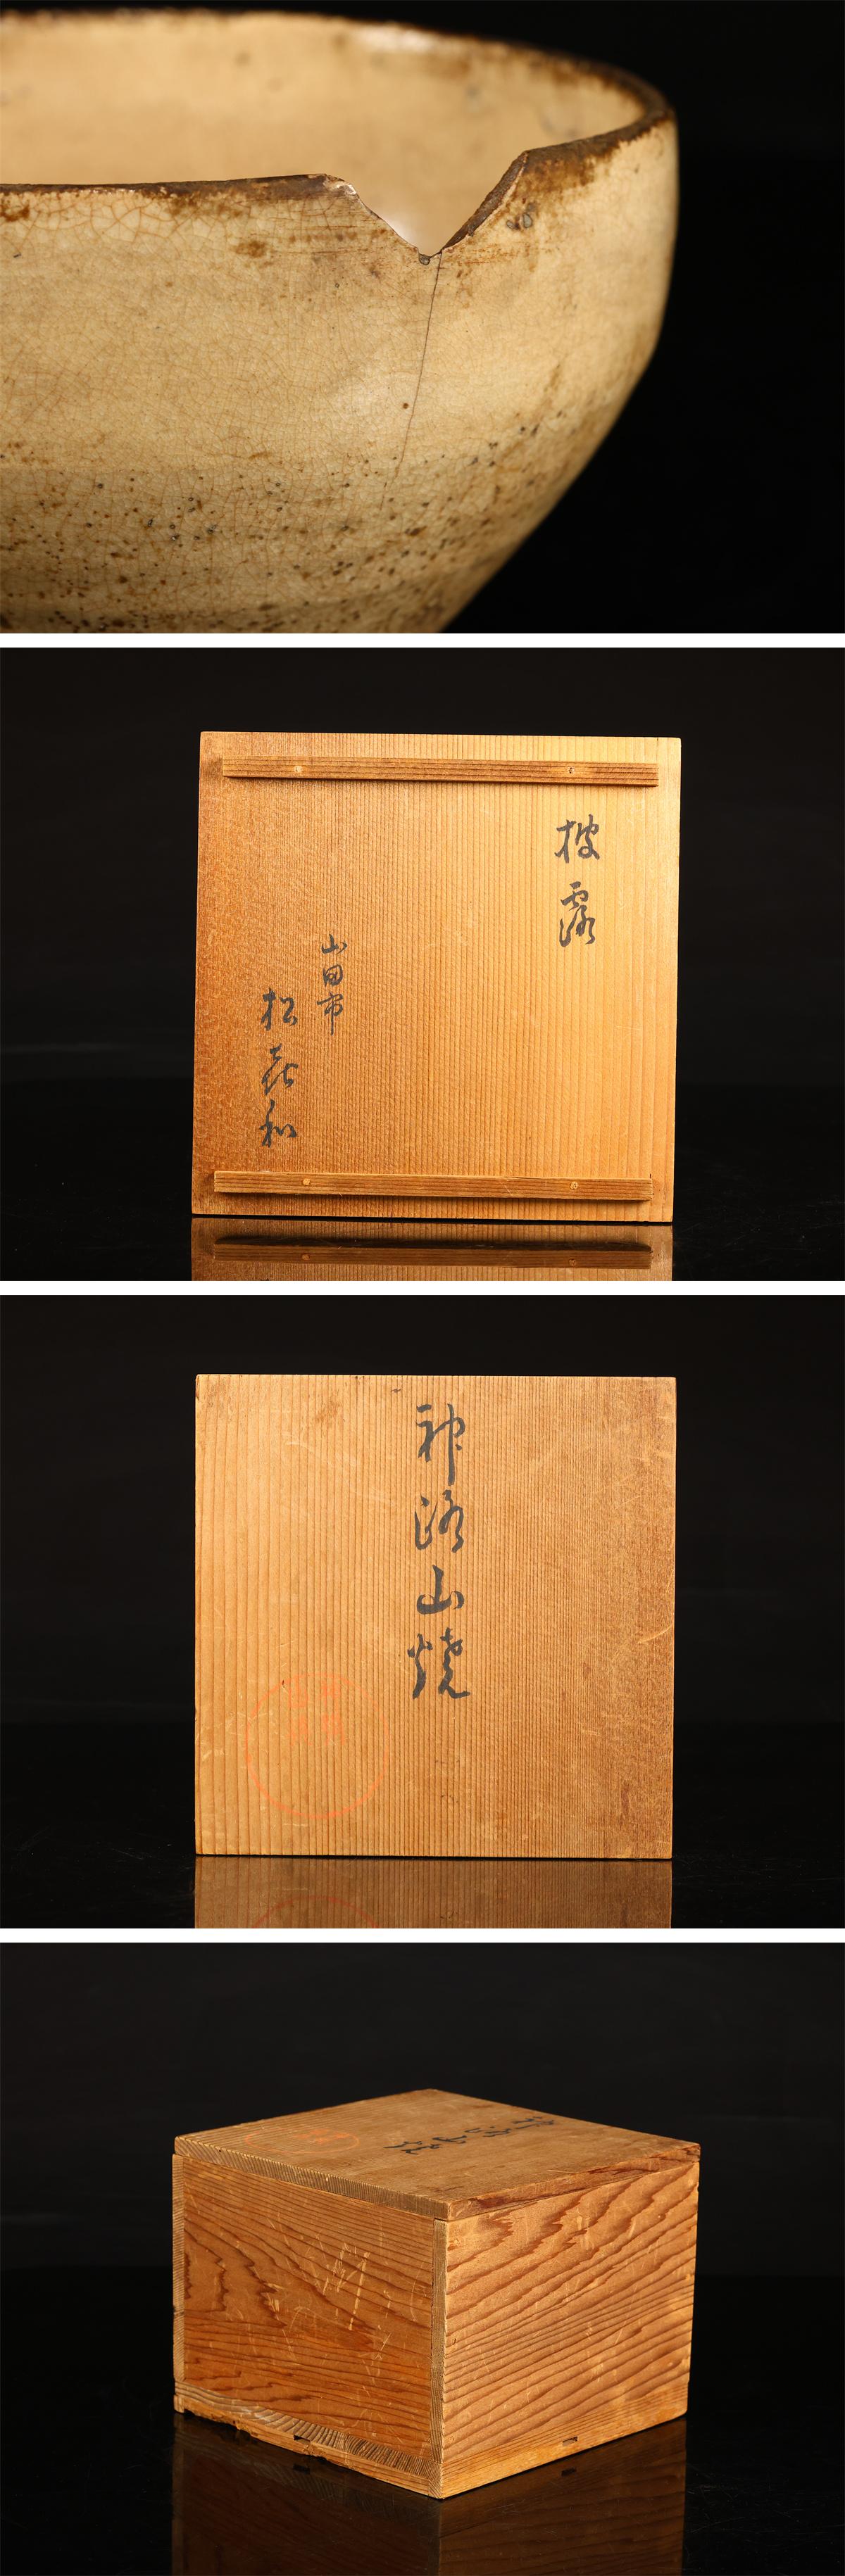 披露
山田市
松喜和
神路山焼